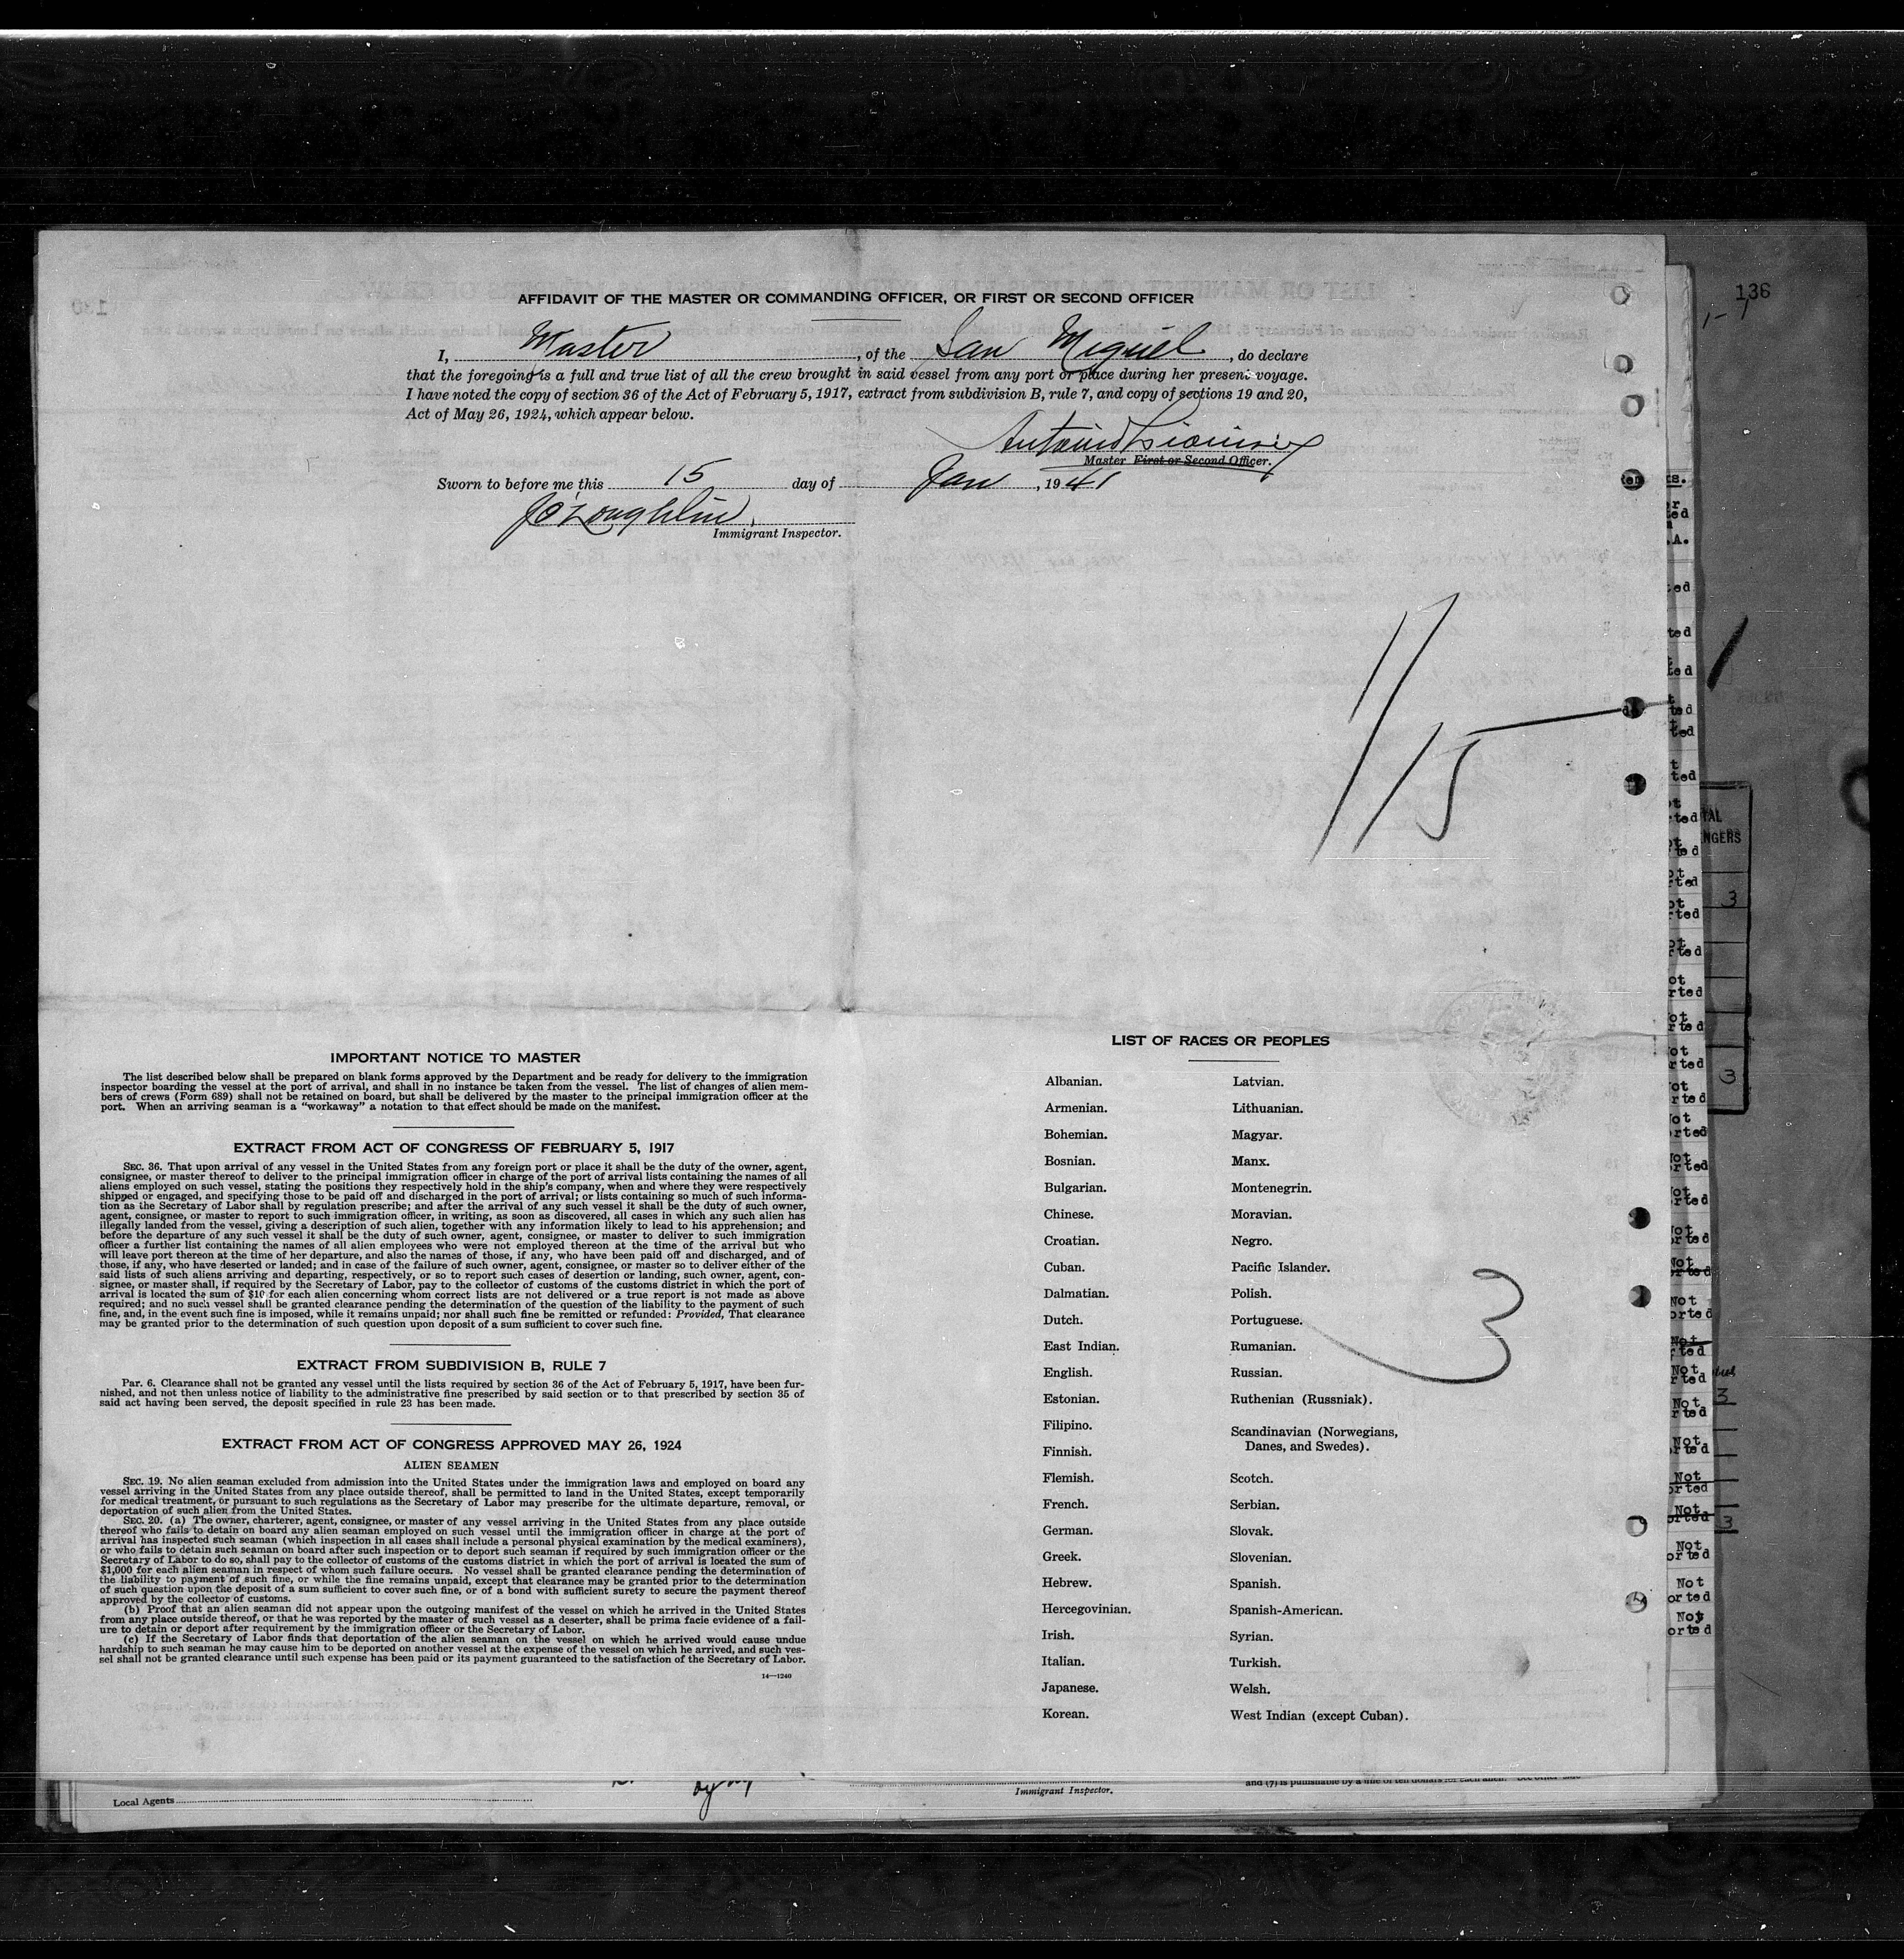 136
1-1
AFFIDAVIT OF THE MASTER OR COMMANDING OFFICER, OR FIRST OR SECOND OFFICER
I, Master, of the San Miguel, do declare
that the foregoing is a full and true list of all the crew brought in said vessel from any port or place during her present voyage.
I have noted the copy of section 36 of the Act of February 5, 1917, extract from subdivision B, rule 7, and copy of sections 19 and 20,
Act of May 26, 1924, which appear below.
Master First or Second Officer.
Sworn to before me this 15 day of Jan, 1941
J O'Loughlin
Immigrant Inspector.
1/15
IMPORTANT NOTICE TO MASTER
The list described below shall be prepared on blank forms approved by the Department and be ready for delivery to the immigration
inspector boarding the vessel at the port of arrival, and shall in no instance be taken from the vessel. The list of changes of alien mem-
bers of crews (Form 689) shall not be retained on board, but shall be delivered by the master to the principal immigration officer at the
port. When an arriving seaman is a "workaway" a notation to that effect should be made on the manifest.
EXTRACT FROM ACT OF CONGRESS OF FEBRUARY 5, 1917
SEC. 36. That upon arrival of any vessel in the United States from any foreign port or place it shall be the duty of the owner, agent,
consignee, or master thereof to deliver to the principal immigration officer in charge of the port of arrival lists containing the names of all
aliens employed on such vessel, stating the positions they respectively hold in the ship's company, when and where they were respectively
shipped or engaged, and specifying those to be paid off and discharged in the port of arrival; or lists containing so much of such informa-
tion as the Secretary of Labor shall by regulation prescribe; and after the arrival of any such vessel it shall be the duty of such owner,
agent, consignee, or master to report to such immigration officer, in writing, as soon as discovered, all cases in which any such alien has
illegally landed from the vessel, giving a description of such alien, together with any information likely to lead to his apprehension; and
before the departure of any such vessel it shall be the duty of such owner, agent, consignee, or master to deliver to such immigration
officer a further list containing the names of all alien employees who were not employed thereon at the time of the arrival but who
will leave port thereon at the time of her departure, and also the names of those, if any, who have been paid off and discharged, and of
those, if any, who have deserted or landed; and in case of the failure of such owner, agent, consignee, or master so to deliver either of the
said lists of such aliens arriving and departing, respectively, or so to report such cases of desertion or landing, such owner, agent, con-
signee, or master shall, if required by the Secretary of Labor, pay to the collector of customs of the customs district in which the port of
arrival is located the sum of $10 for each alien concerning whom correct lists are not delivered or a true report is not made as above
required; and no such vessel shall be granted clearance pending the determination of the question of the liability to the payment of such
fine, and, in the event such fine is imposed, while it remains unpaid; nor shall such fine be remitted or refunded: Provided, That clearance
may be granted prior to the determination of such question upon deposit of a sum sufficient to cover such fine.
EXTRACT FROM SUBDIVISION B, RULE 7
Par. 6. Clearance shall not be granted any vessel until the lists required by section 36 of the Act of February 5, 1917, have been fur-
nished, and not then unless notice of liability to the administrative fine prescribed by said section or to that prescribed by section 35 of
said act having been served, the deposit specified in rule 23 has been made.
EXTRACT FROM ACT OF CONGRESS APPROVED MAY 26, 1924
ALIEN SEAMEN
SEC. 19. No alien seaman excluded from admission into the United States under the immigration laws and employed on board any
vessel arriving in the United States from any place outside thereof, shall be permitted to land in the United States, except temporarily
for medical treatment, or pursuant to such regulations as the Secretary of Labor may prescribe for the ultimate departure, removal, or
deportation of such alien from the United States.
SEC. 20. (a) The owner, charterer, agent, consignee, or master of any vessel arriving in the United States from any place outside
thereof who fails to detain on board any alien seaman employed on such vessel until the immigration officer in charge at the port of
arrival has inspected such seaman (which inspection in all cases shall include a personal physical examination by the medical examiners),
or who fails to detain such seaman on board after such inspection or to deport such seaman if required by such immigration officer or the
Secretary of Labor to do so, shall pay to the collector of customs of the customs district in which the port of arrival is located the sum of
$1,000 for each alien seaman in respect of whom such failure occurs. No vessel shall be granted clearance pending the determination of
the liability to payment of such fine, or while the fine remains unpaid, except that clearance may be granted prior to the determination
of such question upon the deposit of a sum sufficient to cover such fine, or of a bond with sufficient surety to secure the payment thereof
approved by the collector of customs.
(b) Proof that an alien seaman did not appear upon the outgoing manifest of the vessel on which he arrived in the United States
from any place outside thereof, or that he was reported by the master of such vessel as a deserter, shall be prima facie evidence of a fail-
ure to detain or deport after requirement by the immigration officer or the Secretary of Labor.
(c) If the Secretary of Labor finds that deportation of the alien seaman on the vessel on which he arrived would cause undue
hardship to such seaman he may cause him to be deported on another vessel at the expense of the vessel on which he arrived, and such ves-
sel shall not be granted clearance until such expense has been paid or its payment guaranteed to the satisfaction of the Secretary of Labor.
14—1240
LIST OF RACES OR PEOPLES
Albanian.
Armenian.
Bohemian.
Bosnian.
Bulgarian.
Chinese.
Croatian.
Cuban.
Dalmatian.
Dutch.
East Indian.
English.
Estonian.
Filipino.
Finnish.
Flemish.
French.
German.
Greek.
Hebrew.
Hercegovinian.
Irish.
Italian.
Japanese.
Korean.
Latvian.
Lithuanian.
Magyar.
Manx.
Montenegrin.
Moravian.
Negro.
Pacific Islander.
Polish.
Portuguese.
Rumanian.
Russian.
Ruthenian (Russniak).
Scandinavian (Norwegians,
Danes, and Swedes).
Scotch.
Serbian.
Slovak.
Slovenian.
Spanish.
Spanish-American.
Syrian.
Turkish.
Welsh.
West Indian (except Cuban).
3
Local Agents
Immigrant Inspector.